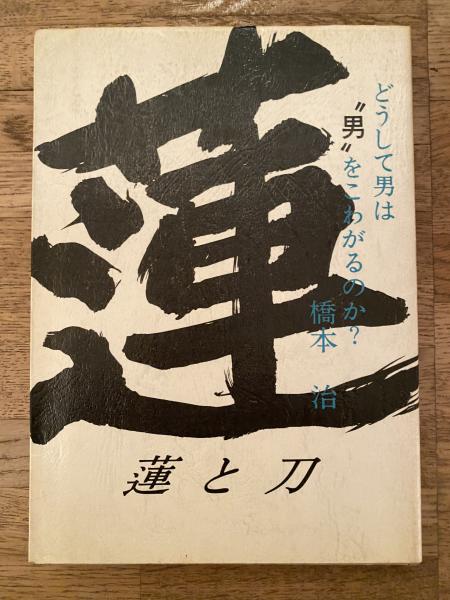 蓮
どうして男は
〝男〟をこわがるのか?
橋本 治
蓮と刀